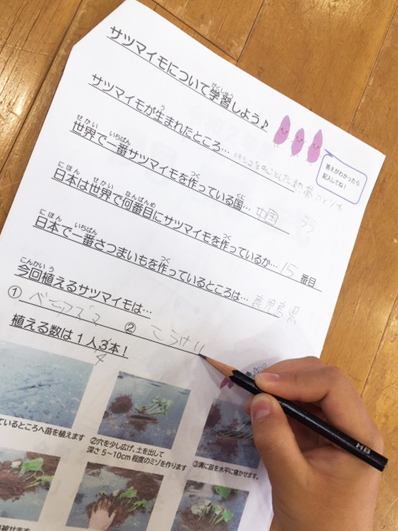 サツマイモについて学習しよう♪
答えがわかったら
記入してね！
サツマイモが生まれたところ…
世界で一番サツマイモを作っている国… 中国
日本は世界で何番目にサツマイモを作っているか… 15 番目
日本で一番さつまいもを作っているところは… 鹿児島県
今回植えるサツマイモは…
① べにアズマ ② こうけい
植える数は1人3本！
4
ているところへ苗を植えます
②穴を少し広げ、土を出して
深さ5~10cm程度のミゾを作ります
③溝に苗を水平に寝かせます。
HB